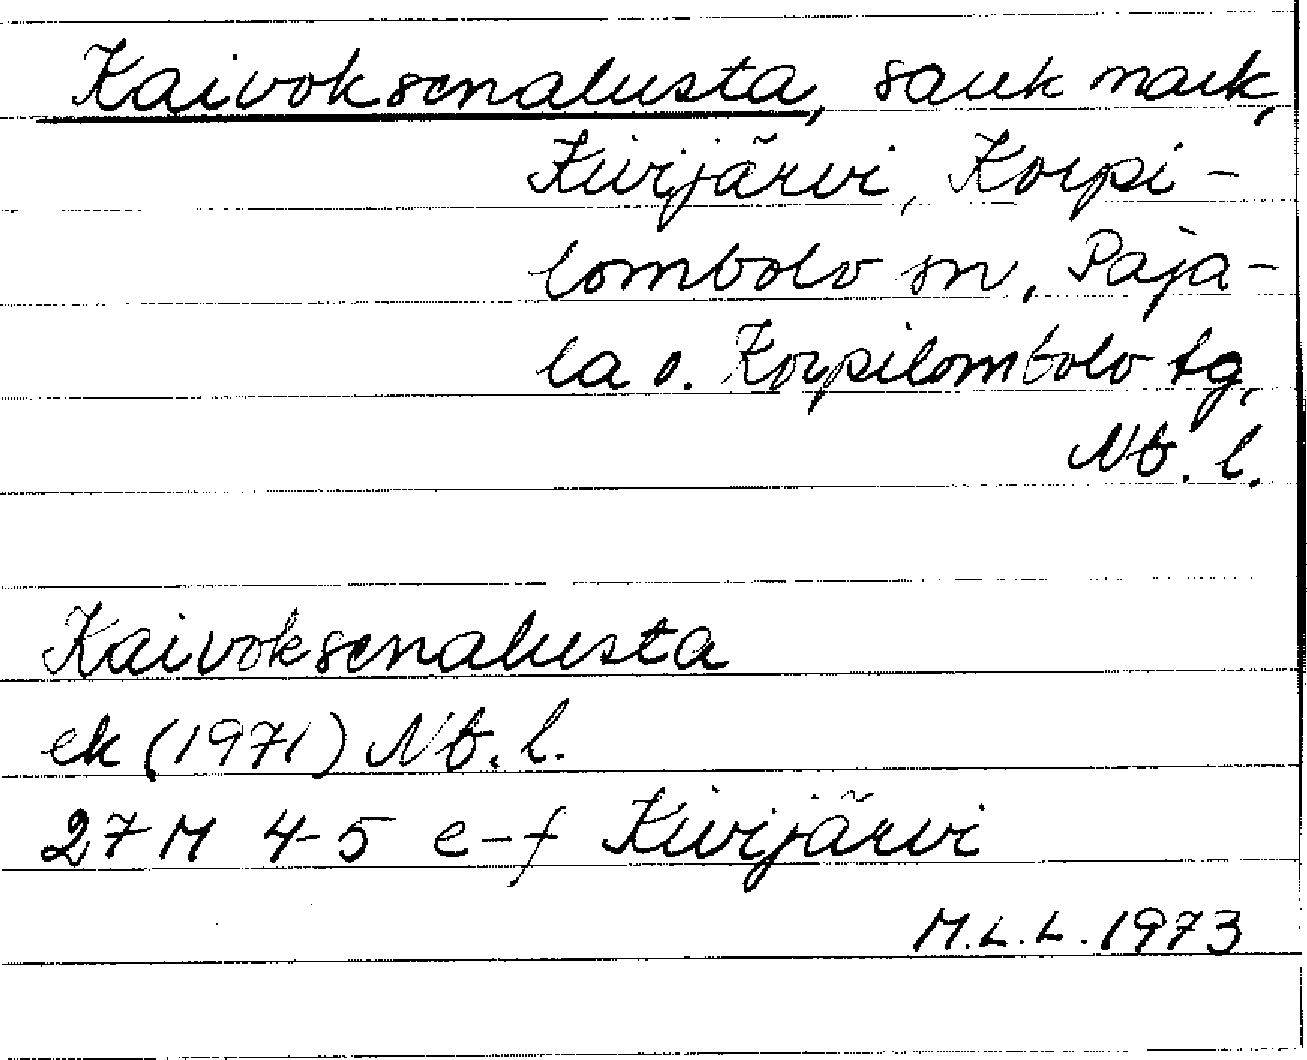 Kaivoksenalusta, sank mark,
Kivijärvi, Korpi-
lombolo sn, Paja-
la o. Korpilombolo tg,
Nb. l.
Kaivoksenalusta
ek (1971) Nb. l.
27 M 4-5 e-f Kivijärvi
M.L.L. 1973